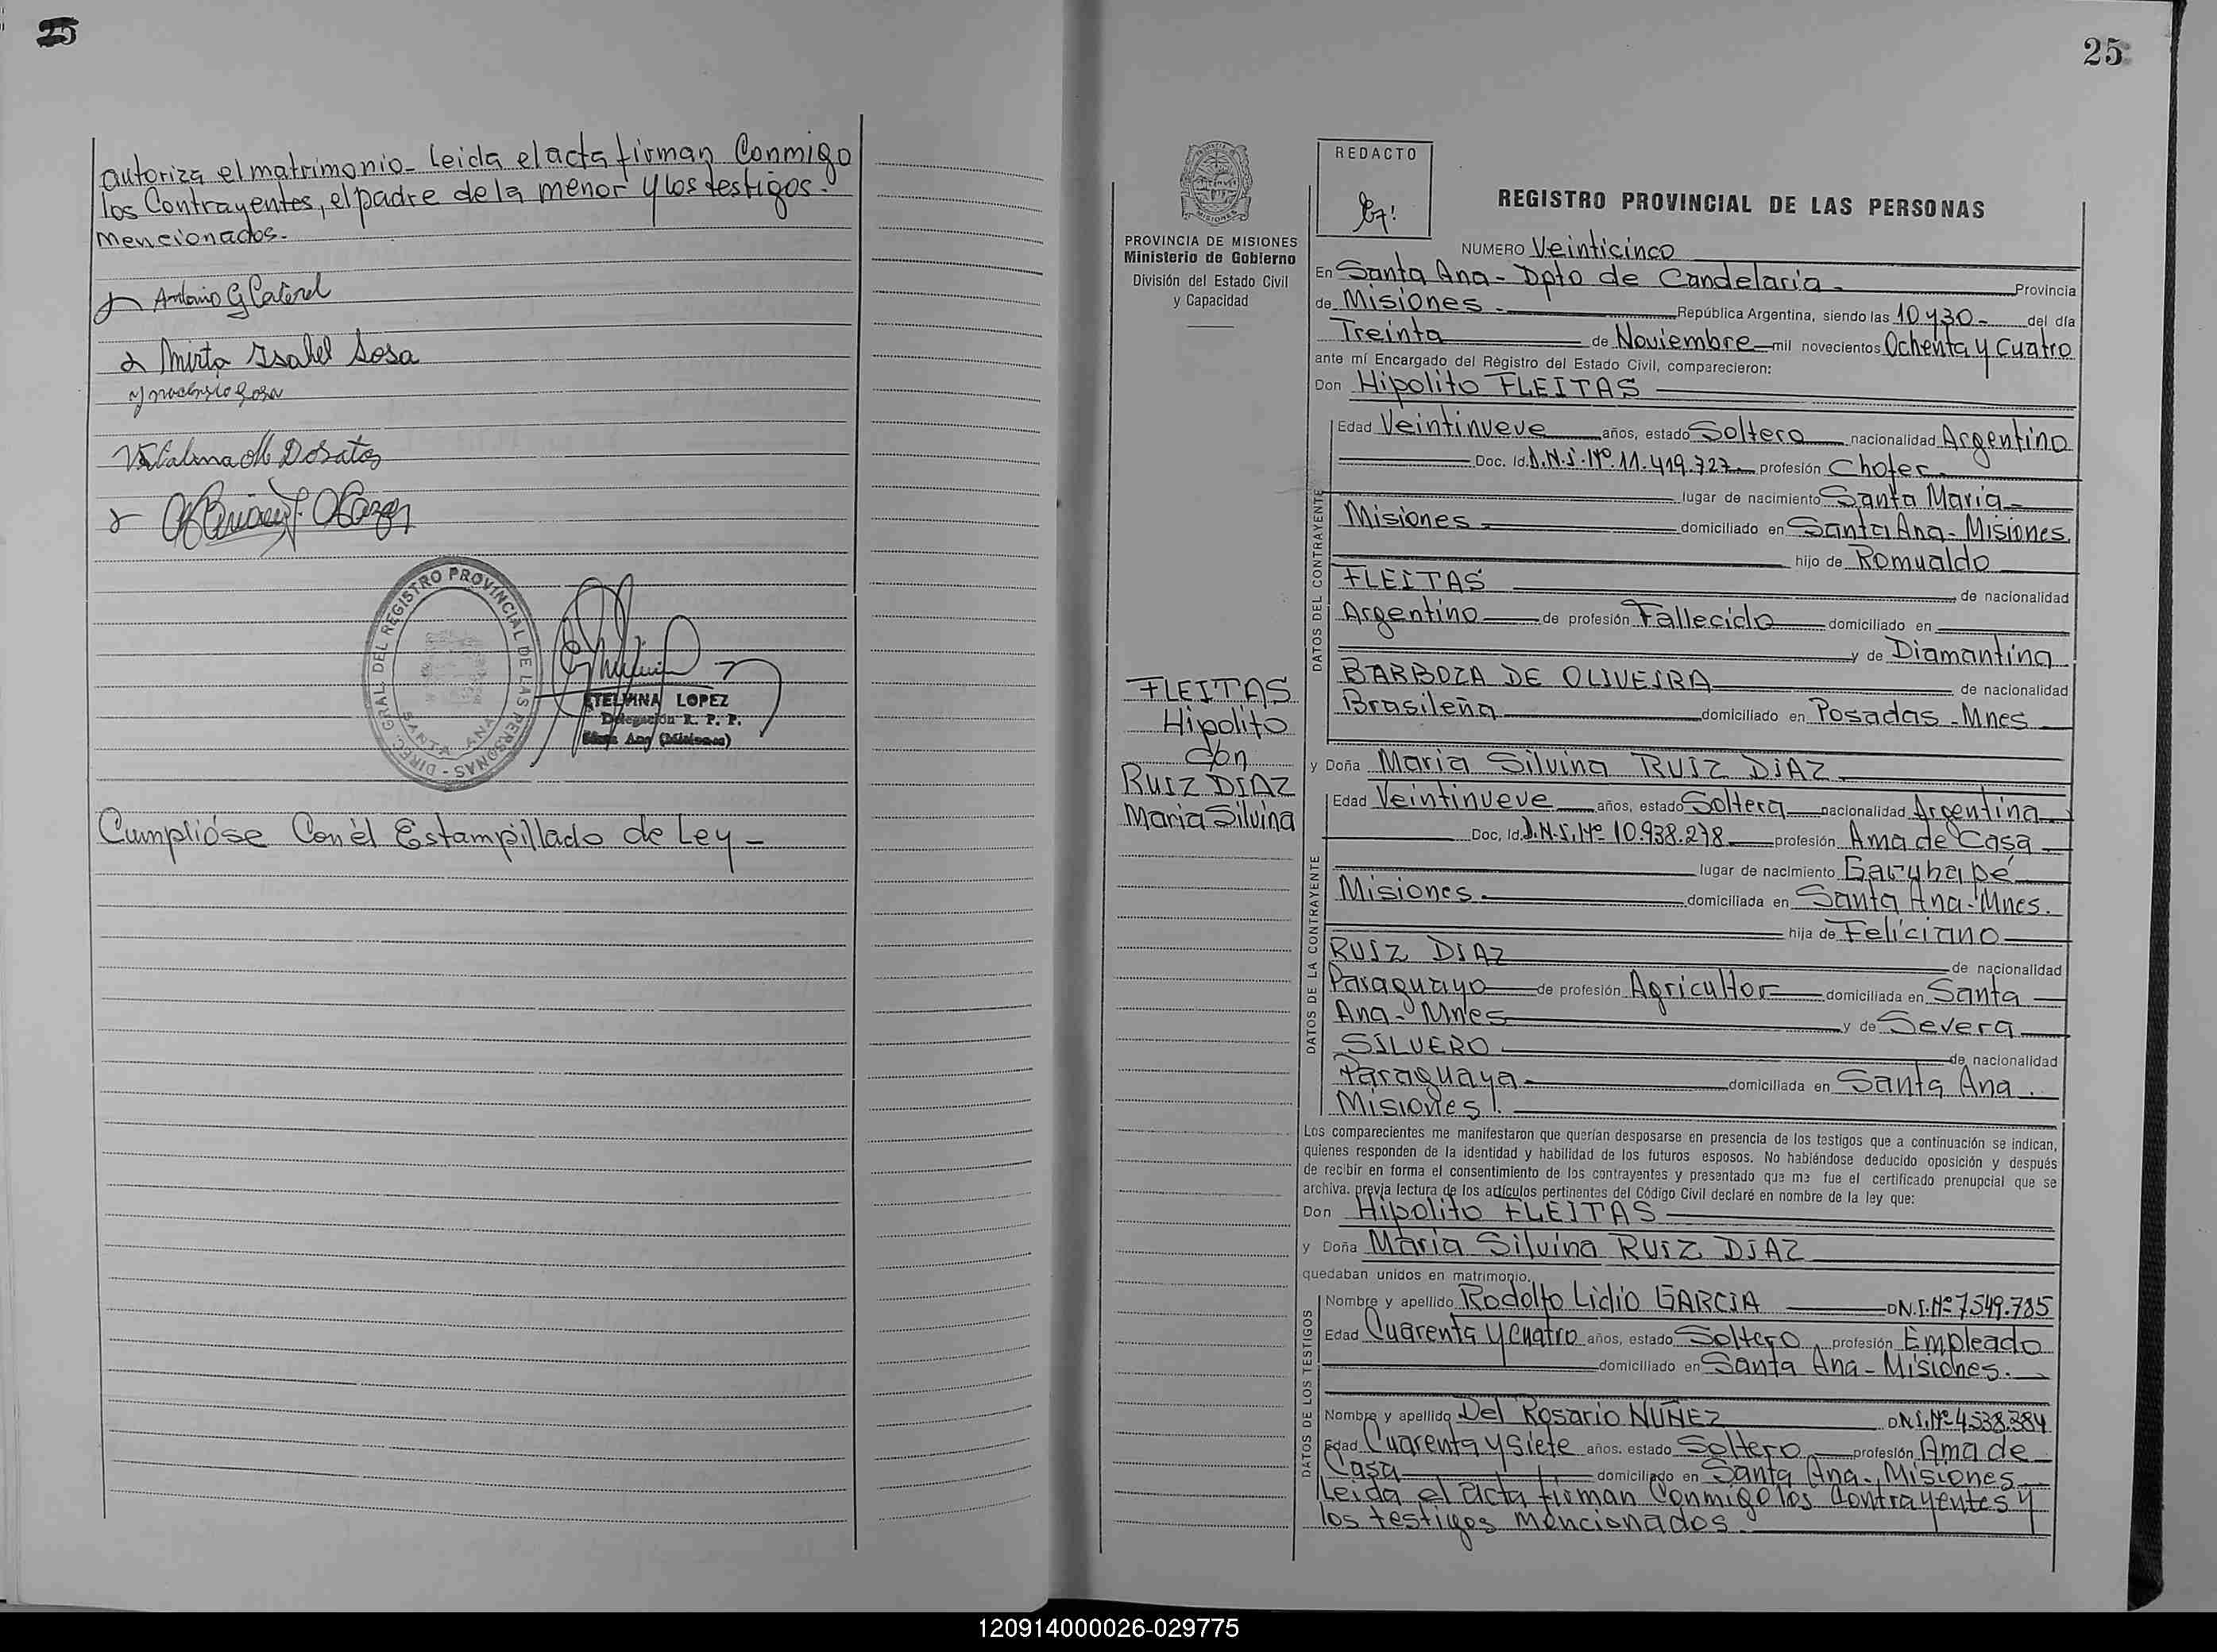 25
autoriza el matrimonio- leida el acta firman Conmigo
los Contrayentes, el padre de la menor y los testigos.-
Mencionados.-
Antonio G
Mirta Isabel Sosa
Sosa
DIREC. GRAL. DEL REGISTRO PROVINCIAL DE LAS PERSONAS -
SANTA ANA
ETELVINA LOPEZ
Delegación R. P. P.
Santa Ana (Misiones)
Cumplióse Con él Estampillado de Ley -
25
REDACTO
PROVINCIA DE MISIONES
Ministerio de Gobierno
División del Estado Civil
y Capacidad
REGISTRO PROVINCIAL DE LAS PERSONAS
NUMERO Veinticinco
En Santa Ana - Dpto de Candelaria - Provincia
de Misiones - República Argentina, siendo las 10 y 30 - del día
Treinta de Noviembre mil novecientos Ochenta y Cuatro
ante mí Encargado del Registro del Estado Civil, comparecieron:
Don Hipolito FLEITAS
FLEITAS
Hipolito
Con
RUIZ DIAZ
Maria Silvina
DATOS DEL CONTRAYENTE
Edad Veintinueve años, estado Soltero nacionalidad Argentino
Doc. Id. D.N.I. Nº 11.419.727 profesión Chofer
lugar de nacimiento Santa Maria
Misiones domiciliado en Santa Ana - Misiones
hijo de Romualdo
FLEITAS de nacionalidad
Argentino de profesión Fallecido domiciliado en
y de Diamantina
BARBOZA DE OLIVEIRA de nacionalidad
Brasileña domiciliado en Posadas - Mnes
y Doña Maria Silvina RUIZ DIAZ
DATOS DE LA CONTRAYENTE
Edad Veintinueve años, estado Soltera nacionalidad Argentina
Doc, Id. D.N.I. Nº 10.938.278 profesión Ama de Casa
lugar de nacimiento Garuhapé
Misiones domiciliada en Santa Ana - Mnes.
hija de Feliciano
RUIZ DIAZ de nacionalidad
Paraguayo de profesión Agricultor domiciliada en Santa
Ana - Mnes y de Severa
SILVERO de nacionalidad
Paraguaya domiciliada en Santa Ana.
Misiones.
Los comparecientes me manifestaron que querían desposarse en presencia de los testigos que a continuación se indican,
quienes responden de la identidad y habilidad de los futuros esposos. No habiéndose deducido oposición y después
de recibir en forma el consentimiento de los contrayentes y presentado que me fue el certificado prenupcial que se
archiva, previa lectura de los artículos pertinentes del Código Civil declaré en nombre de la ley que:
Don Hipolito FLEITAS
y Doña Maria Silvina RUIZ DIAZ
quedaban unidos en matrimonio.
DATOS DE LOS TESTIGOS
Nombre y apellido Rodolfo Lidio GARCIA DN.I. Nº 7.549.785
Edad Cuarenta y Cuatro años, estado Soltero profesión Empleado
domiciliado en Santa Ana - Misiones.
Nombre y apellido Del Rosario NUÑEZ DN.I. Nº 4.538.384
Edad Cuarenta y Siete años. estado Soltero profesión Ama de
Casa domiciliado en Santa Ana - Misiones
Leida el acta firman Conmigo los Contrayentes y
los testigos mencionados.
120914000026-029775